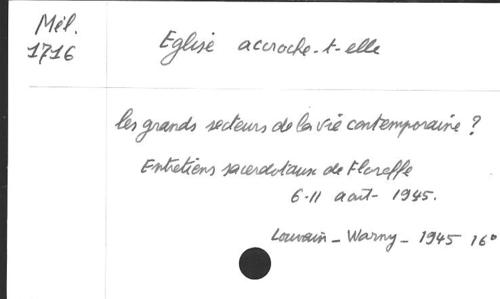 Mél.
1716
Eglise accroche-t-elle
les grands secteurs de la vie contemporaine ?
Entretiens sacerdotaux de Floreffe
6-11 août- 1945.
Louvain - Warny - 1945 16°